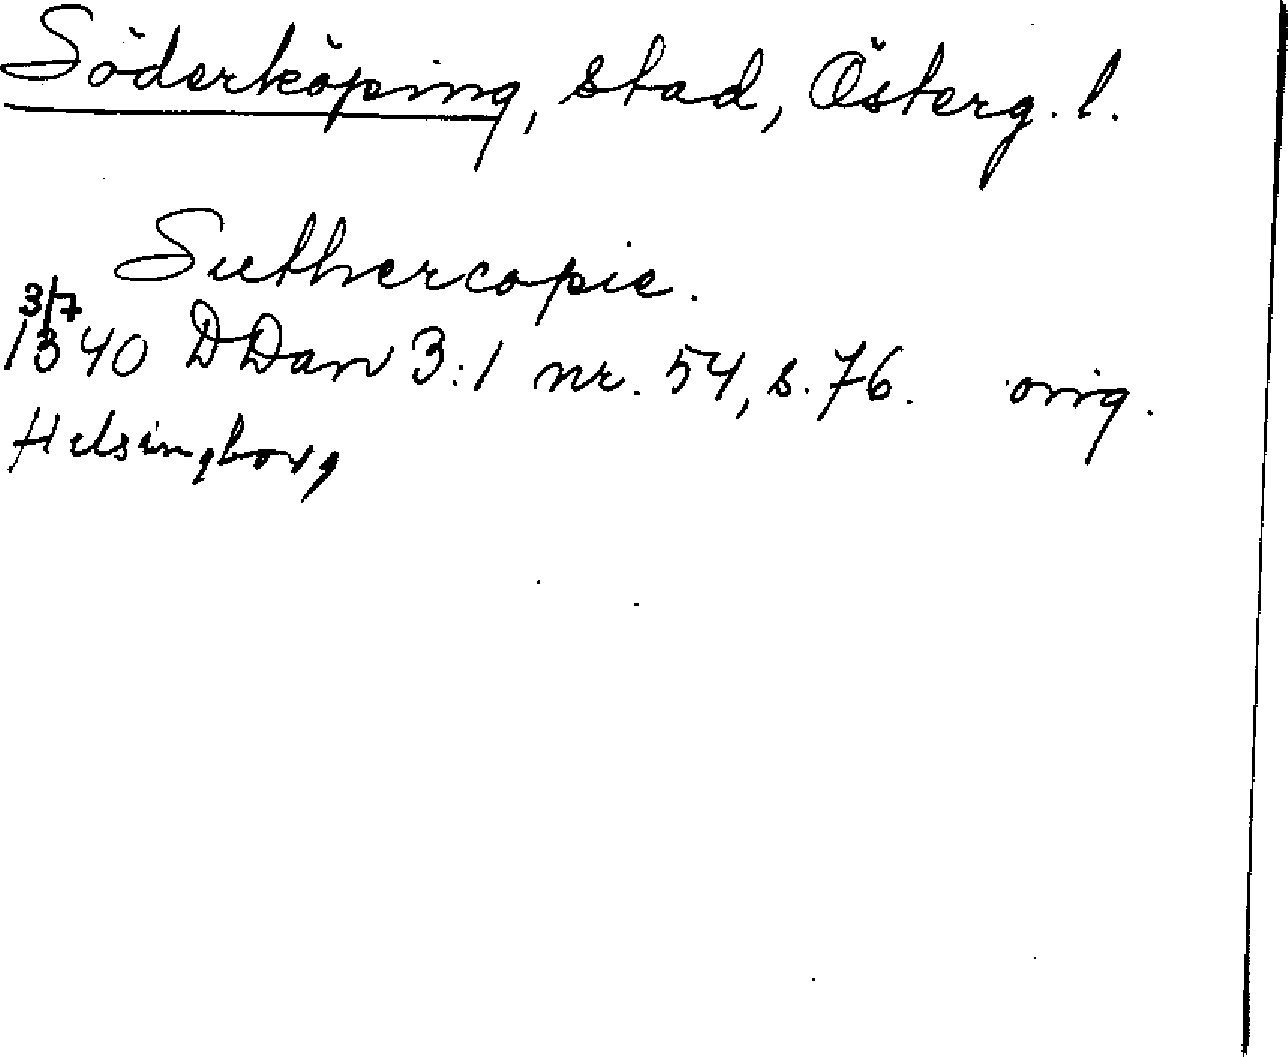 Söderköping, stad, Österg. l.
Suthercopie.
3/7
1340 DDan 3:1 nr. 54, s. 76. orig.
Helsingborg